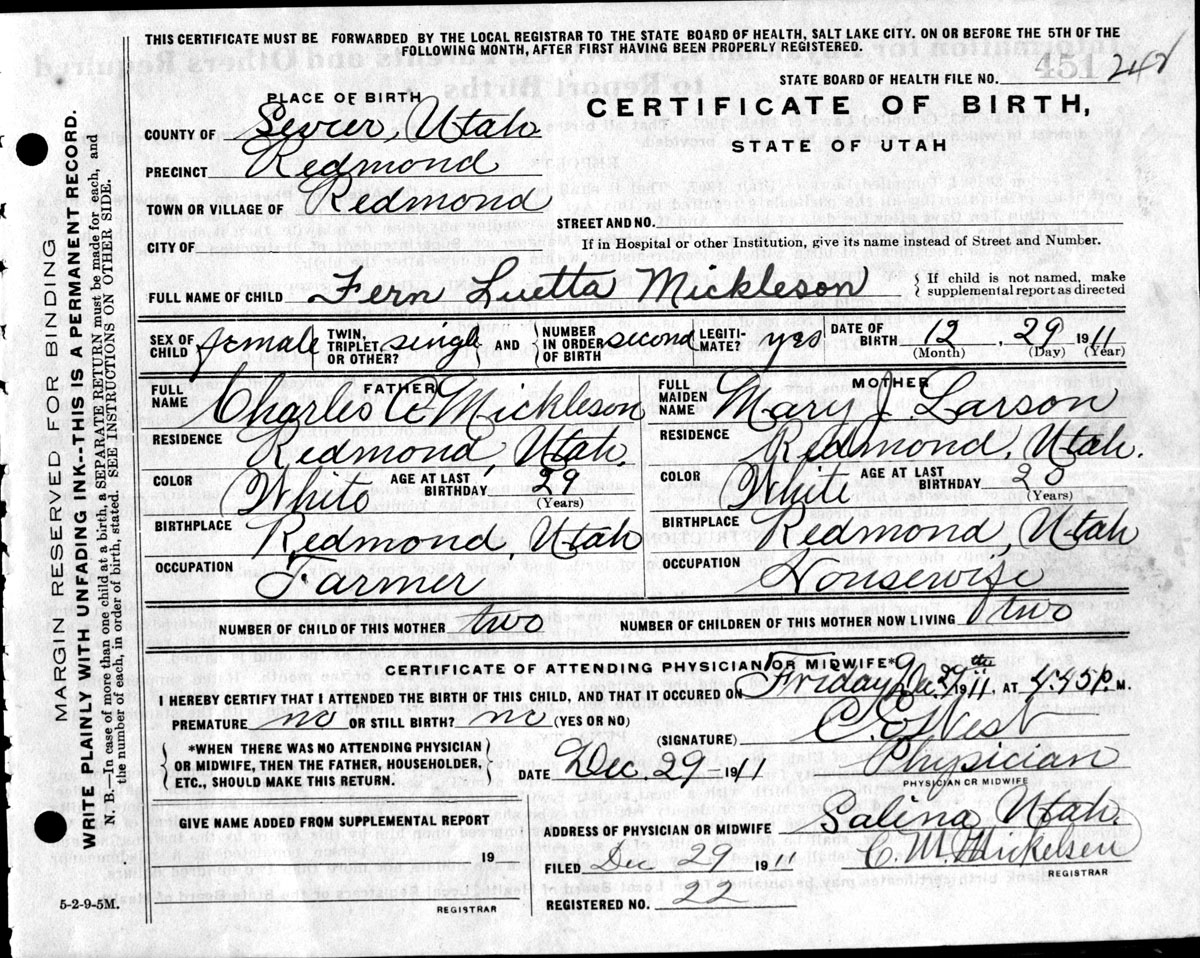 THIS CERTIFICATE MUST BE FORWARDED BY THE LOCAL REGISTRAR TO THE STATE BOARD OF HEALTH, SALT LAKE CITY. ON OR BEFORE THE 5TH OF THE
FOLLOWING MONTH, AFTER FIRST HAVING BEEN PROPERLY REGISTERED.
STATE BOARD OF HEALTH FILE NO.
PLACE OF BIRTH
CERTIFICATE OF BIRTH,
COUNTY OF Sevier, Utah
STATE OF UTAH
PRECINCT Redmond
TOWN OR VILLAGE OF Redmond
STREET AND NO.
CITY OF
If in Hospital or other Institution, give its name instead of Street and Number.
FULL NAME OF CHILD Fern Luetta Mickleson { If child is not named, make supplemental report as directed
SEX OF CHILD female TWIN, TRIPLET OR OTHER? single AND NUMBER IN ORDER OF BIRTH second LEGITI-MATE? yes DATE OF BIRTH 12, 29 1911
(Month) (Day) (Year)
FATHER
MOTHER
FULL NAME Charles Mickleson
FULL MAIDEN NAME Mary J. Larson
RESIDENCE Redmond, Utah.
RESIDENCE Redmond, Utah.
COLOR White AGE AT LAST BIRTHDAY 29 (Years)
COLOR White AGE AT LAST BIRTHDAY (Years)
BIRTHPLACE Redmond, Utah
BIRTHPLACE Redmond, Utah
OCCUPATION Farmer
OCCUPATION Housewife
NUMBER OF CHILD OF THIS MOTHER two
NUMBER OF CHILDREN OF THIS MOTHER NOW LIVING two
CERTIFICATE OF ATTENDING PHYSICIAN OR MIDWIFE*
I HEREBY CERTIFY THAT I ATTENDED THE BIRTH OF THIS CHILD, AND THAT IT OCCURED ON Friday 1911. AT 4:45 P. M.
PREMATURE no OR STILL BIRTH? no (YES OR NO)
(SIGNATURE) West
Physician
PHYSICIAN OR MIDWIFE
*WHEN THERE WAS NO ATTENDING PHYSICIAN
OR MIDWIFE, THEN THE FATHER, HOUSEHOLDER,
ETC., SHOULD MAKE THIS RETURN.
DATE Dec. 29 1911
GIVE NAME ADDED FROM SUPPLEMENTAL REPORT
19
REGISTRAR
ADDRESS OF PHYSICIAN OR MIDWIFE Salina Utah.
FILED Dec 29 1911 C. M. Mickelsen
REGISTRAR
REGISTERED NO. 22
5-2-9-5M.
MARGIN RESERVED FOR BINDING
WRITE PLAINLY WITH UNFADING INK--THIS IS A PERMANENT RECORD.
N. B.—In case of more than one child at a birth, a SEPARATE RETURN must be made for each, and
the number of each, in order of birth, stated. SEE INSTRUCTIONS ON OTHER SIDE.